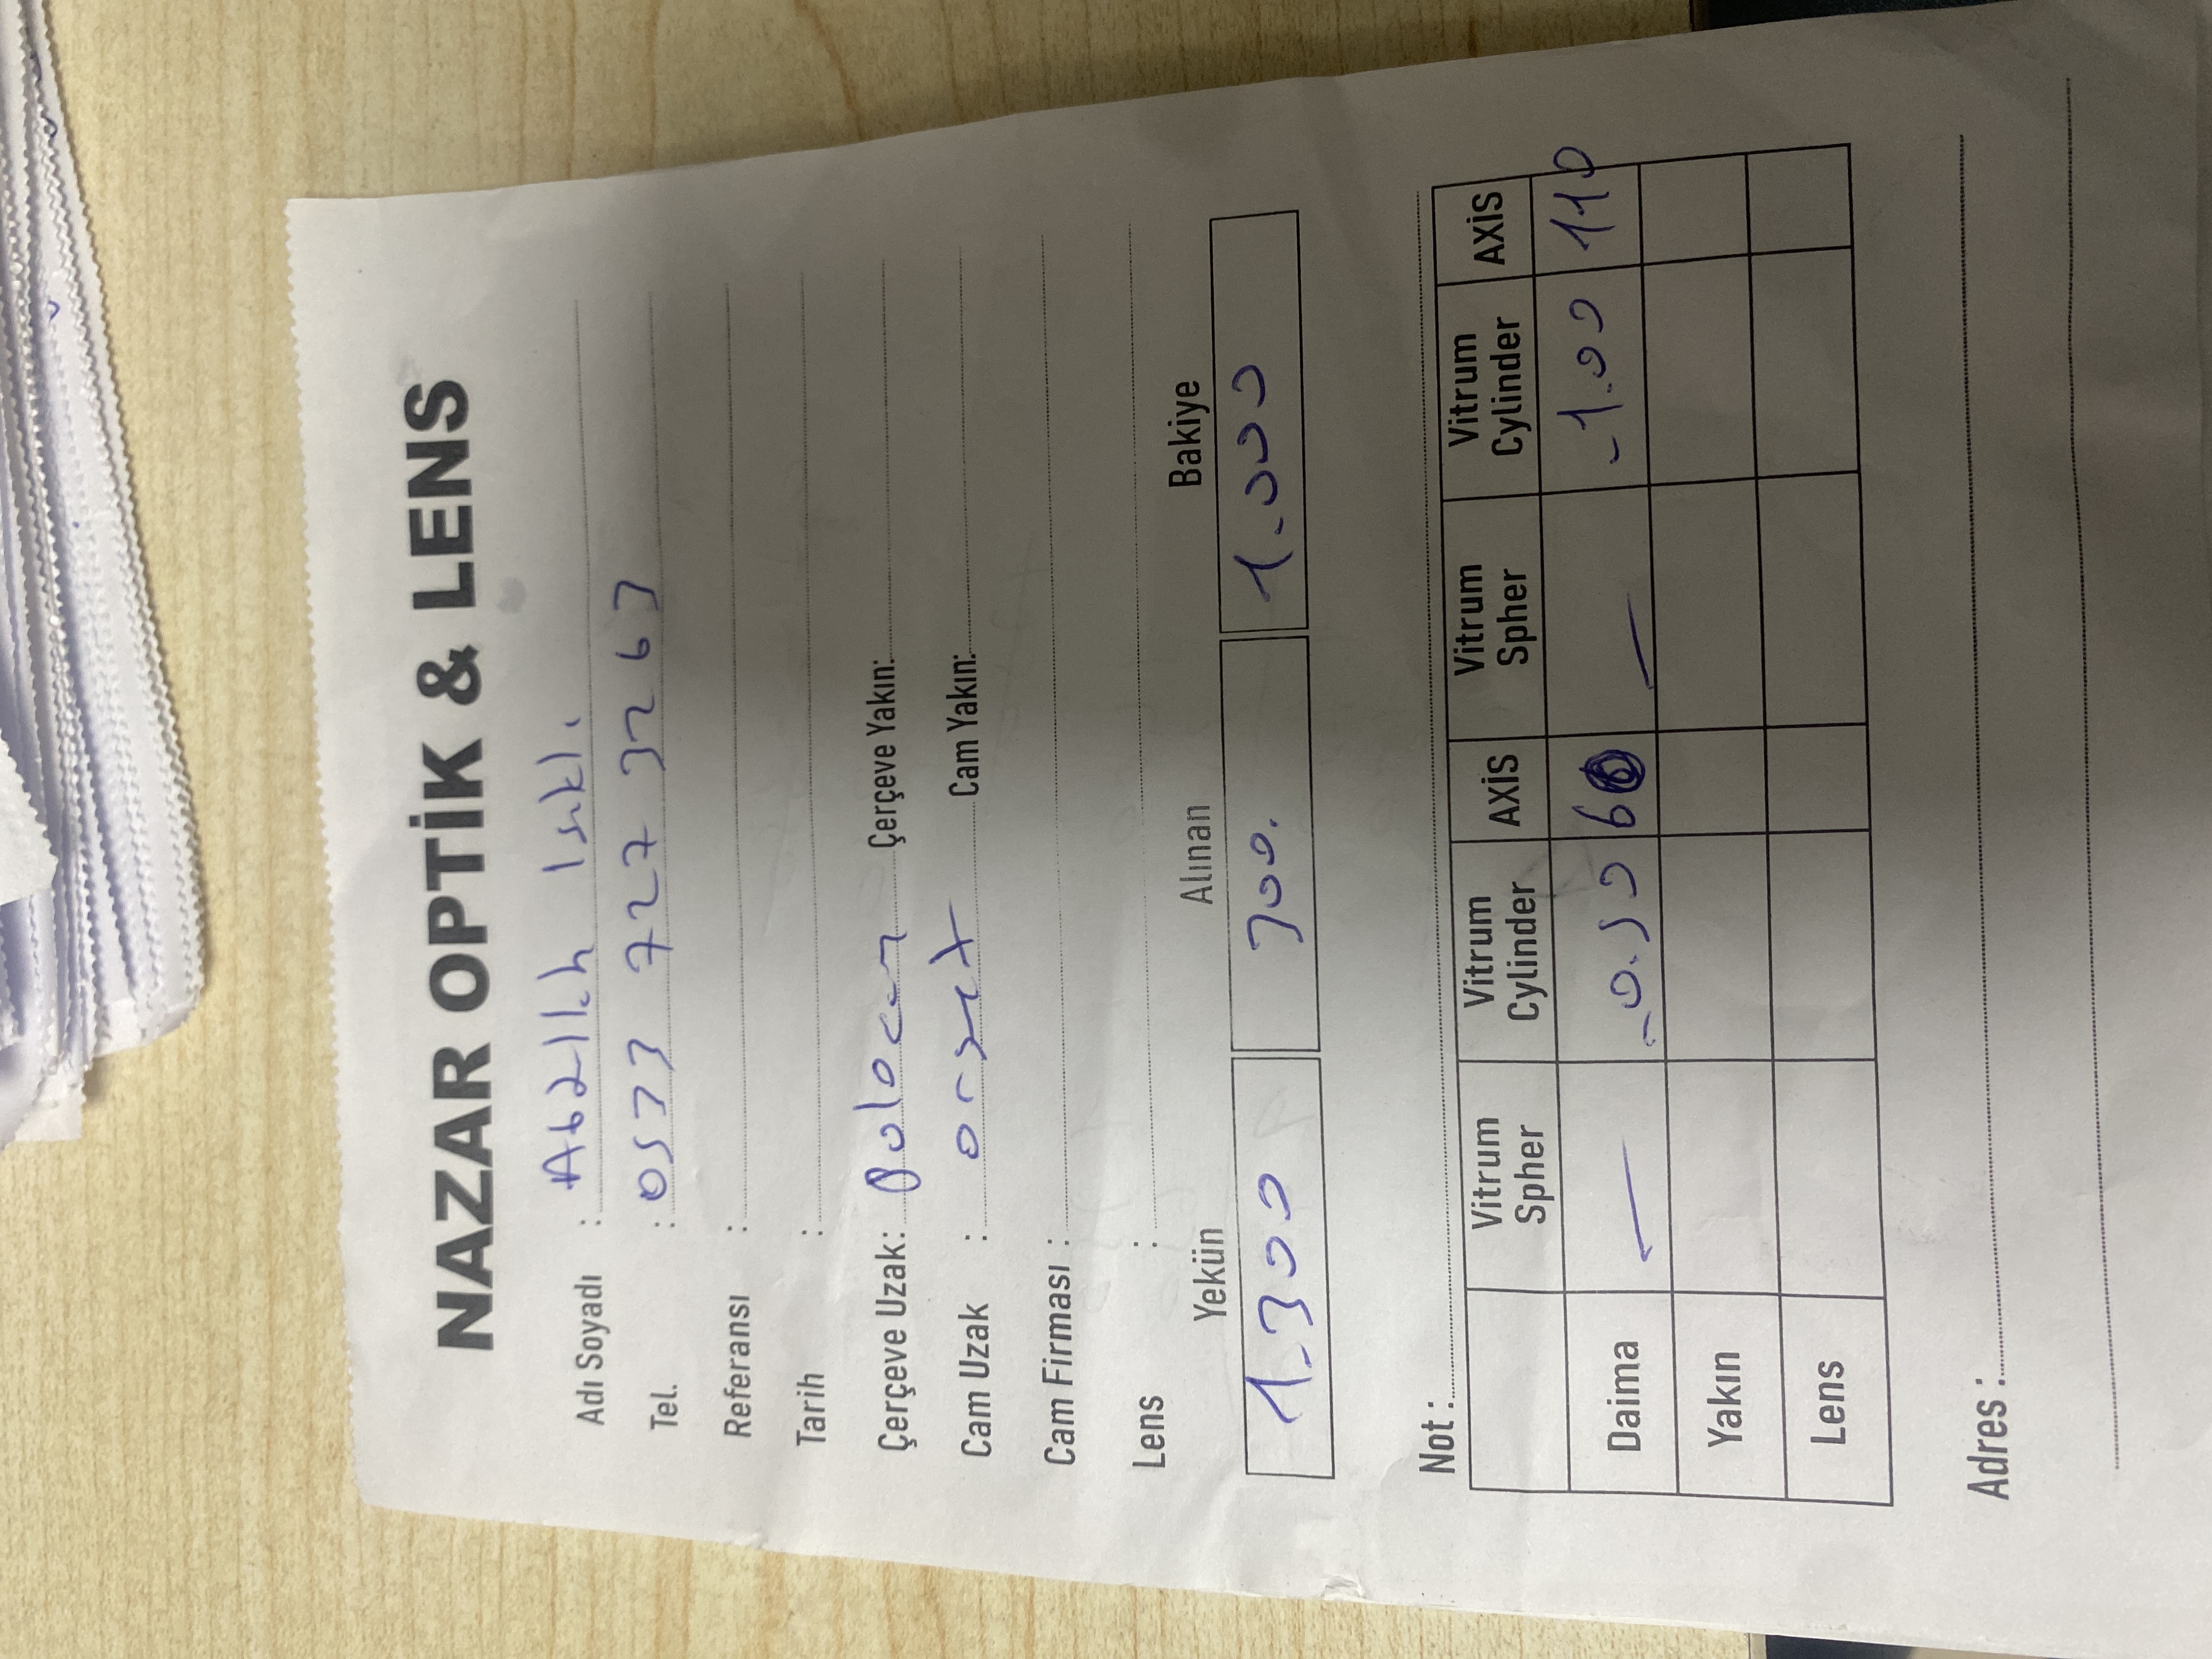 NAZAR OPTİK & LENS
Adı Soyadı : Abdllh Isıklı
Tel. : 0533 727 3263
Referansı :
Tarih :
Çerçeve Uzak: Polocan Çerçeve Yakın:
Cam Uzak : Cam Yakın:
Cam Firması :
Lens :
Yekün Alınan Bakiye
1.300 300. 1.000
Not :
Vitrum Spher Vitrum Cylinder AXİS Vitrum Spher Vitrum Cylinder AXİS
Daima — -0.50 60 — -1.00 110
Yakın
Lens
Adres :